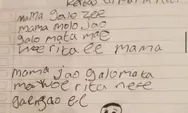 mama galo zee
mama molo jao
galo mata mae
nee rita ee mama
mama jao galo mata
nee rita neee